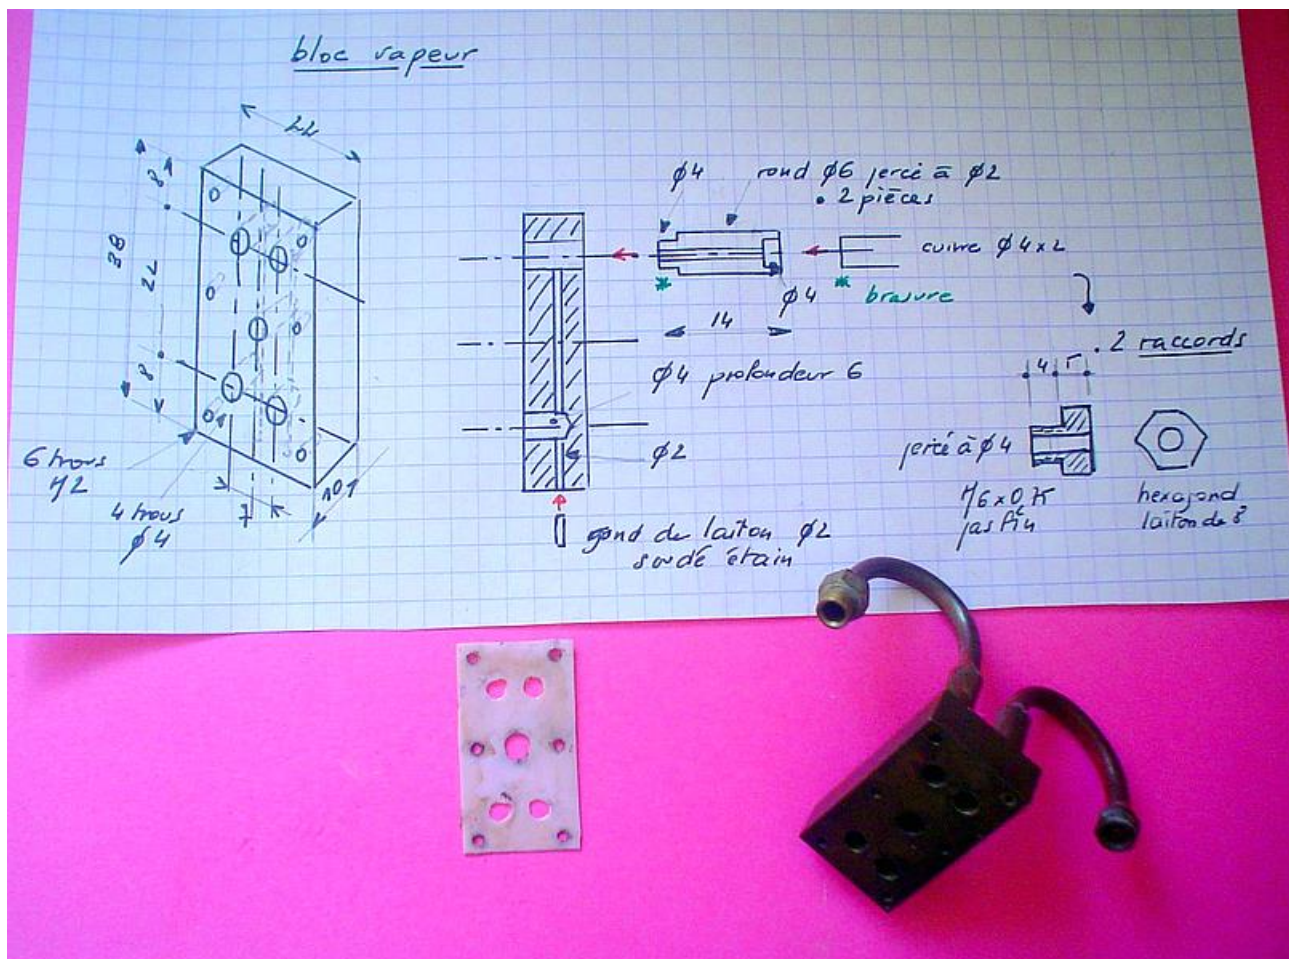 bloc vapeur
22
8
38
22
8
6 trous
M2
4 trous
φ4
7
10
φ4
rond φ6 percé à φ2
• 2 pièces
cuivre φ4x2
φ4
* * brasure
14
φ4 profondeur 6
φ2
gond de laiton φ2
soudé étain
• 2 raccords
4 5
percé à φ4
M6x0,75
pas fin
hexagond
laiton de 8